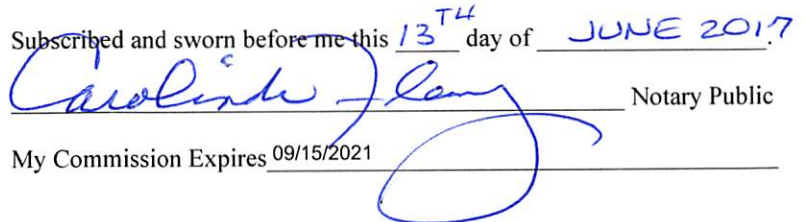 Subscribed and sworn before me this 13TH day of JUNE 2017.
Notary Public
My Commission Expires 09/15/2021